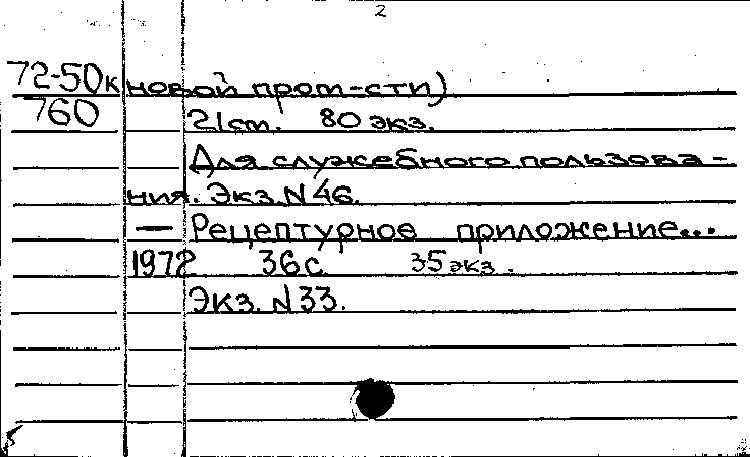 2
72-50к новой пром-сти)
760 21 ст. 80 экз.
Для служебного пользова-
ния. Экз. N 46.
— Рецептурное приложение...
1972 36 с. 35 экз.
Экз. N 33.